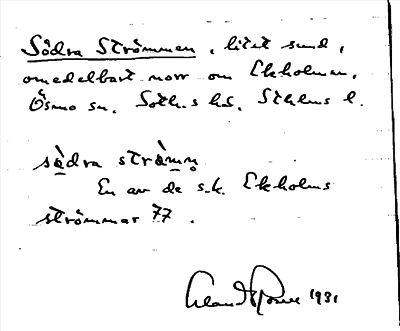 Södra Strömmen, litet sund,
omedelbart norr om Ekholmen.
Ösmo sn. Soth.s hd. Sthlms l.
södra strömṃ
En av de s.k. Ekholms
strömmar 77.
1931